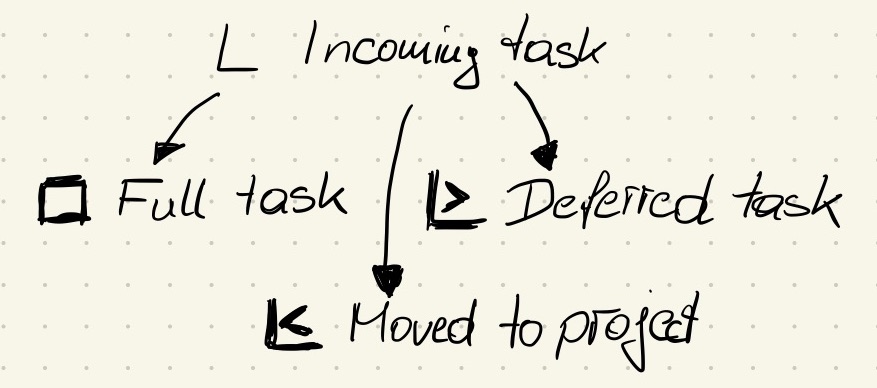 L Incoming task
□ Full task
Deferred task
Moved to project